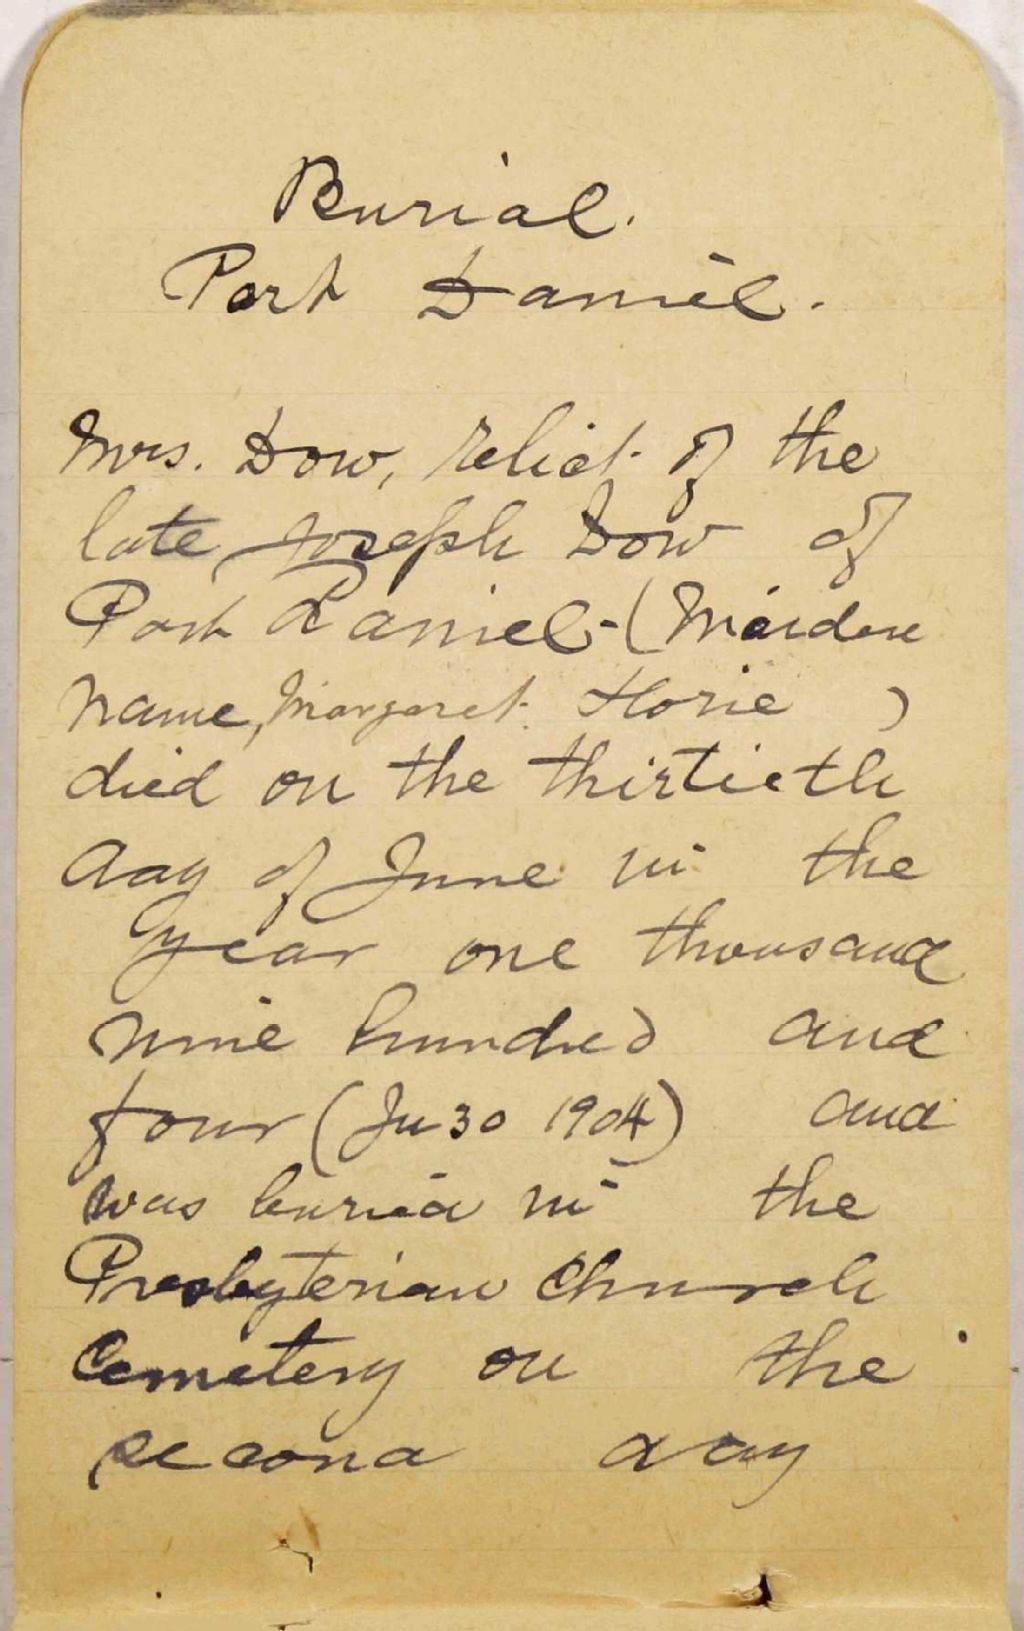 Burial.
Port Daniel.
Mrs. Dow, relict of the
late Joseph Dow of
Port Daniel - (Maiden
name, Margaret Horie )
died on the thirtieth
day of June in the
year one thousand
nine hundred and
four (Ju 30 1904) and
was buried in the
Presbyterian Church
Cemetery on the
second day